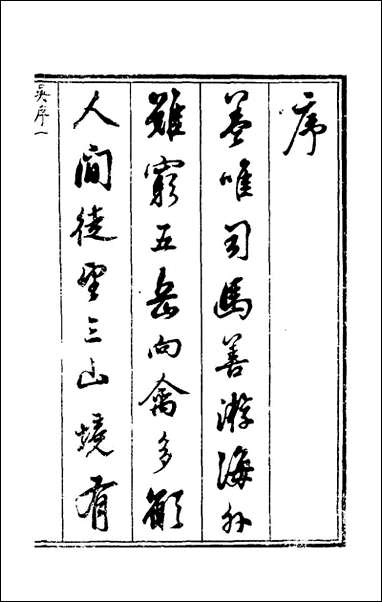 序
蓋唯司馬善游海外
難窮五岳向禽多願
人間徒望三山境有
吳序一